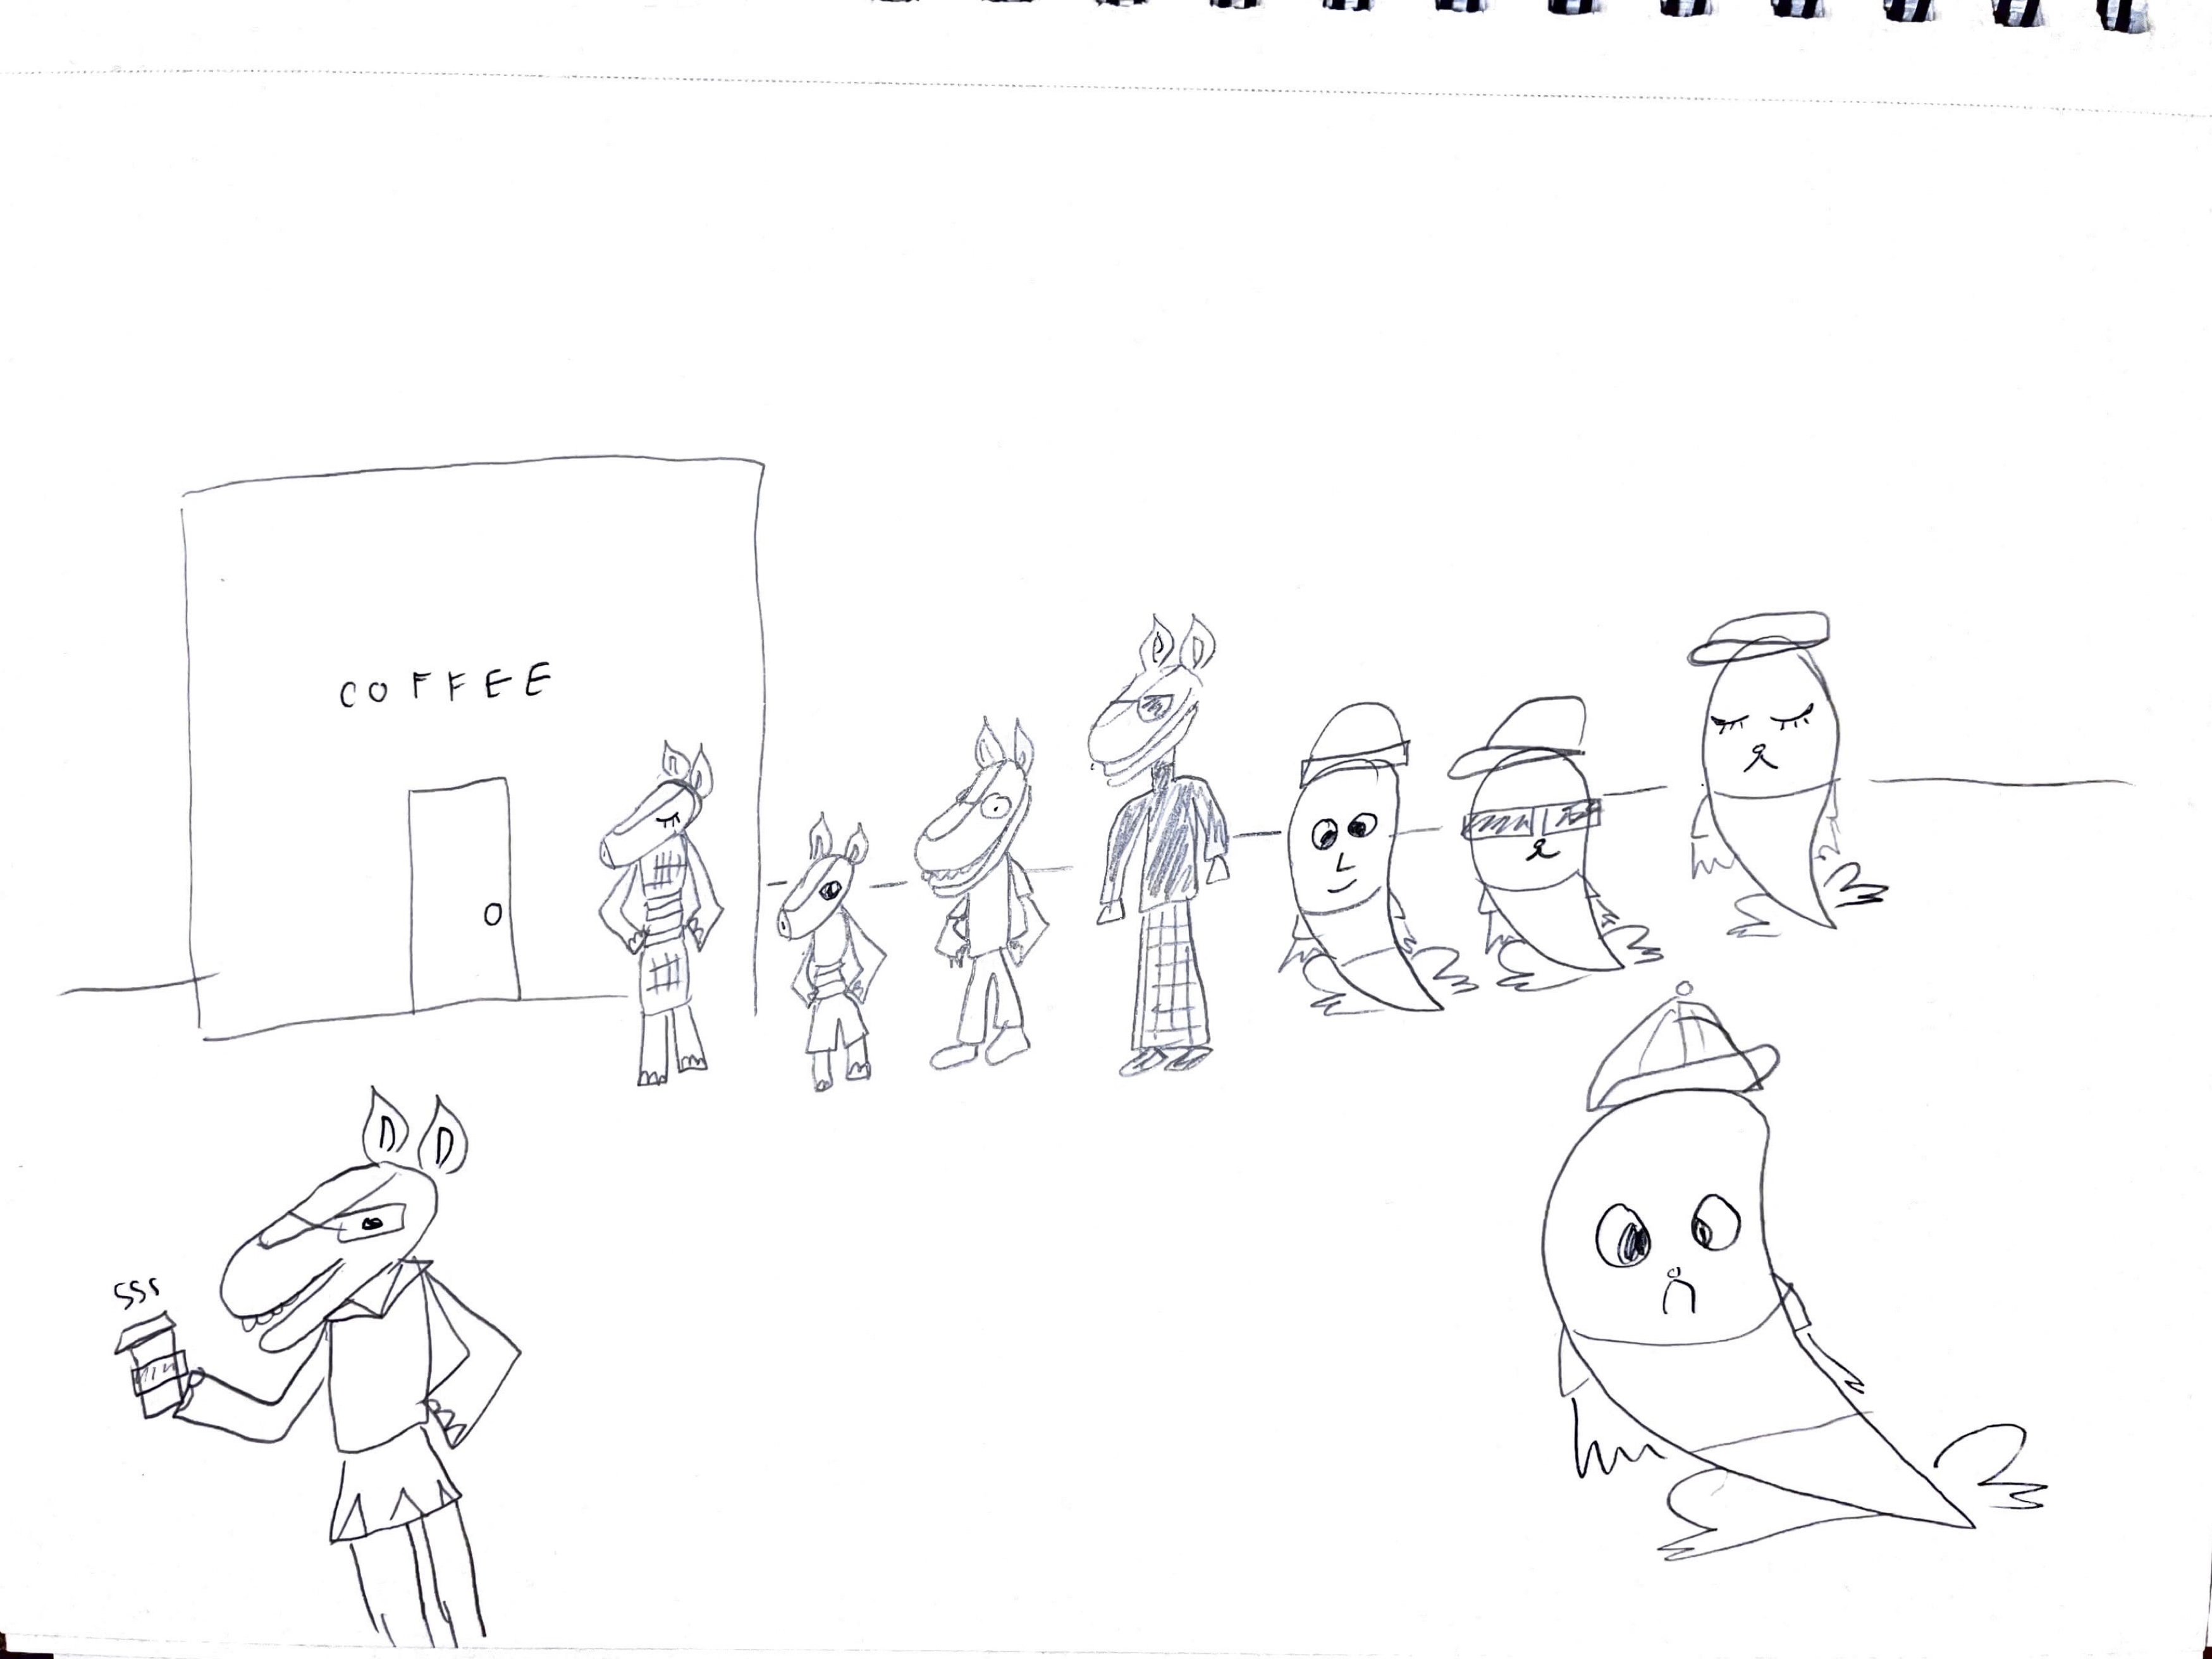 COFFEE
SSS